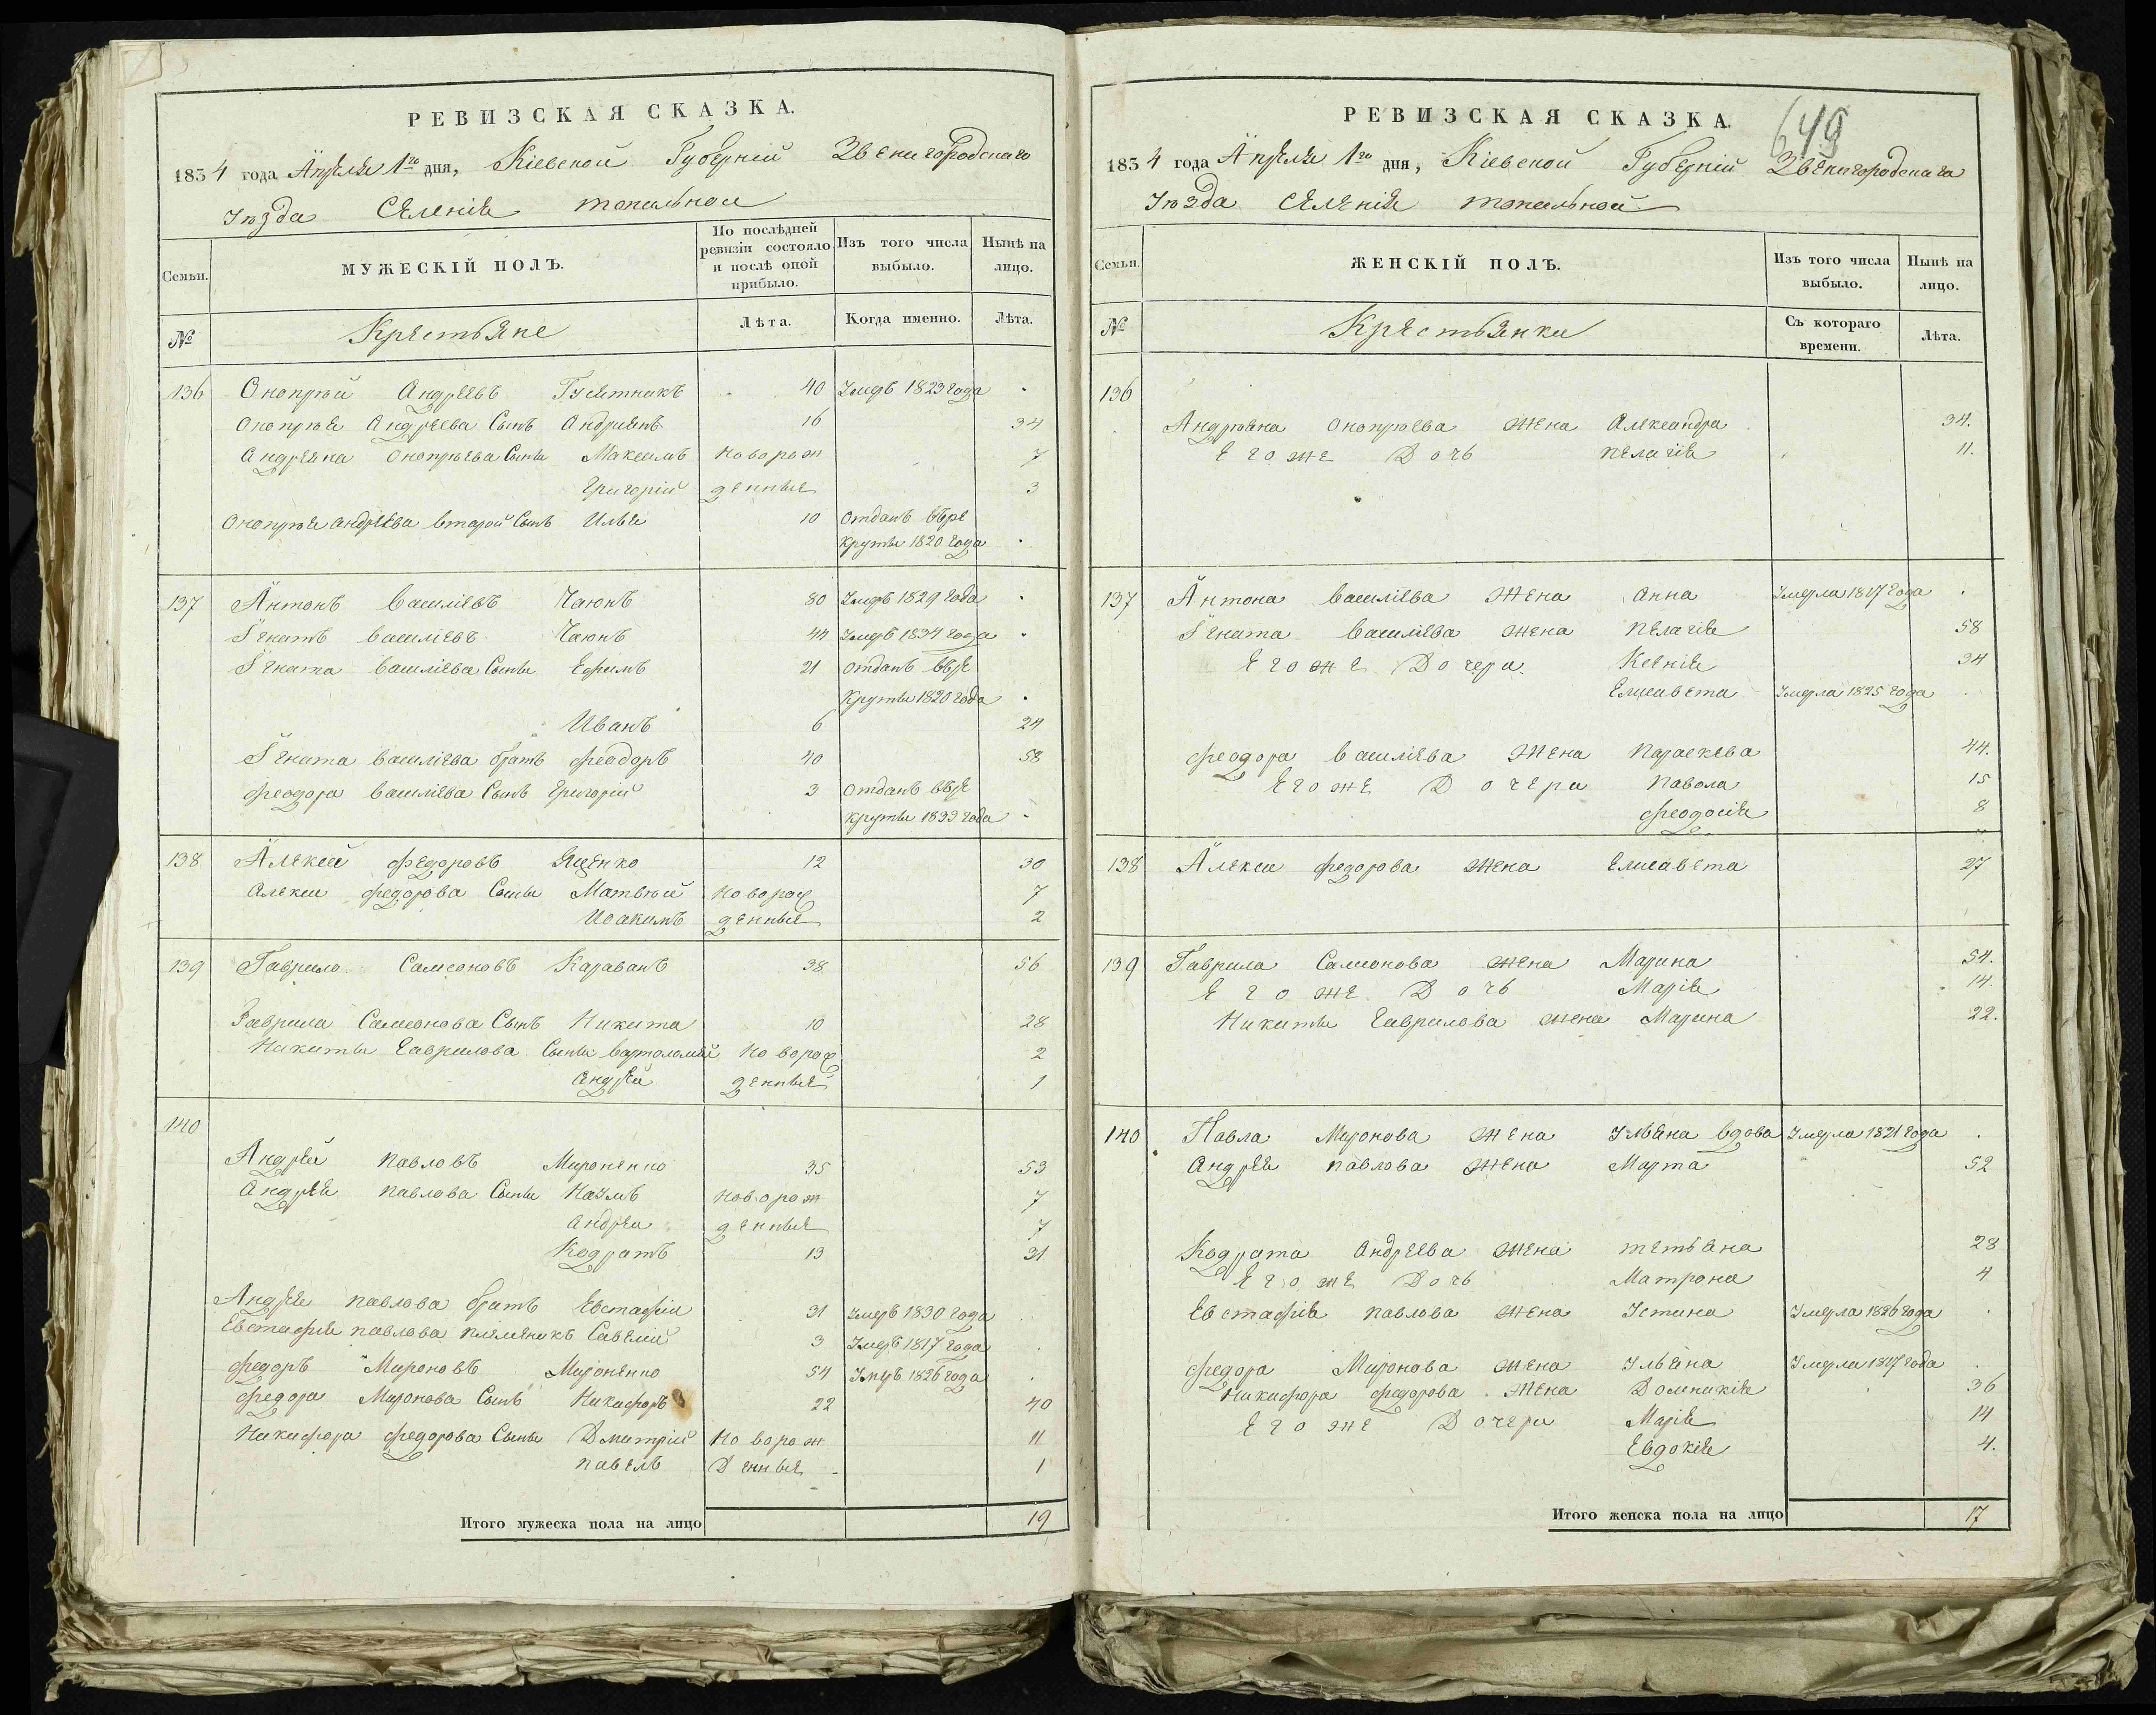 РЕВИЗСКАЯ СКАЗКА.
1834 года Апрѣля 1го дня, Кіевской Губерніи Звенигородскаго
Уѣзда Селенія топильной
Семьи.
МУЖЕСКІЙ ПОЛЪ.
По послѣдней ревизіи состояло и послѣ оной прибыло.
Изъ того числа выбыло.
Нынѣ на лицо.
№
Крестьяне
Лѣта.
Когда именно.
Лѣта.
136 Онопрѣй Андреевъ Гусятникъ 40 Умеръ 1823 года
Онопрѣя Андреева Сынъ Андриянъ 16 34
Андреяна Онопрѣева Сыны Максимъ новорож 7
Григорій денныя 3
Онопрѣя андреева второй Сынъ Илья 10 отданъ въре
круты 1820 года
137 Антонъ Василіевъ Чаюнъ 80 Умеръ 1829 года
Игнатъ василіевъ Чаюнъ 44 Умеръ 1834 года
Игната василіева Сыны Ефимъ 21 отданъ въре
круты 1820 года
Иванъ 6 24
Игната василіева братъ Феодоръ 40 58
Феодора василіева Сынъ Григорій 3 отданъ въре
круты 1833 года
138 Алексей Федоровъ Яценко 12 30
Алексея Федорова Сыны Матвѣй новорож 7
Иоакимъ денныя 2
139 Гаврило Самсоновъ Караванъ 38 56
Гаврила Самсонова Сынъ Никита 10 28
Никиты Гаврилова Сыны вартоломей новорож 2
Андрей денныя 1
140
Андрей павловъ Мироненко 35 53
Андрея павлова Сыны Наумъ новорож 7
Андреи денныя 7
Кодратъ 13 31
Андрея павлова братъ Евстафіи 31 Умеръ 1830 года
Евстафія павлова племяникъ Савелій 3 Умеръ 1817 года
Федоръ Мироновъ Мироненко 54 Умръ 1826 года
Федора Миронова Сынъ Никифоръ 22 40
Никифора Федорова Сыны Дмитрій новорож 11
павелъ Денныя 1
Итого мужеска пола на лицо 19
649
РЕВИЗСКАЯ СКАЗКА.
1834 года Апрѣля 1го дня, Кіевской Губерніи Звенигородскаго
Уѣзда Селенія топильной
Семьи.
ЖЕНСКІЙ ПОЛЪ.
Изъ того числа выбыло.
Нынѣ на лицо.
№
Крестьянки
Съ котораго времени.
Лѣта.
136
Андрѣяна Онопрѣева жена Александра 34.
Егоже Дочь пелагія 11.
137 Антона василіева жена Анна Умерла 1817 года
Игната василіева жена пелагія 58
Егоже Дочери Ксенія 34
Елисавета Умерла 1825 года
Феодора василіева жена параскева 44.
Егоже Дочери павола 15
Феодосія 8
138 Алексея Федорова жена Елисавета 27
139 Гаврила Самсонова жена Марина 54.
Егоже Дочь Марія 14.
Никиты Гаврилова жена Марина 22.
140 Павла Миронова жена Ульяна вдова Умерла 1821 года
Андрея павлова жена Марта 52
Кодрата Андреева жена тетьяна 28
Егоже Дочь Матрона 4
Евстафія павлова жена Устина Умерла 1826 года
Федора Миронова жена Ульяна Умерла 1817 года
Никифора Федорова жена Домникія 36
Егоже Дочери Марія 14
Евдокія 4.
Итого женска пола на лицо 17